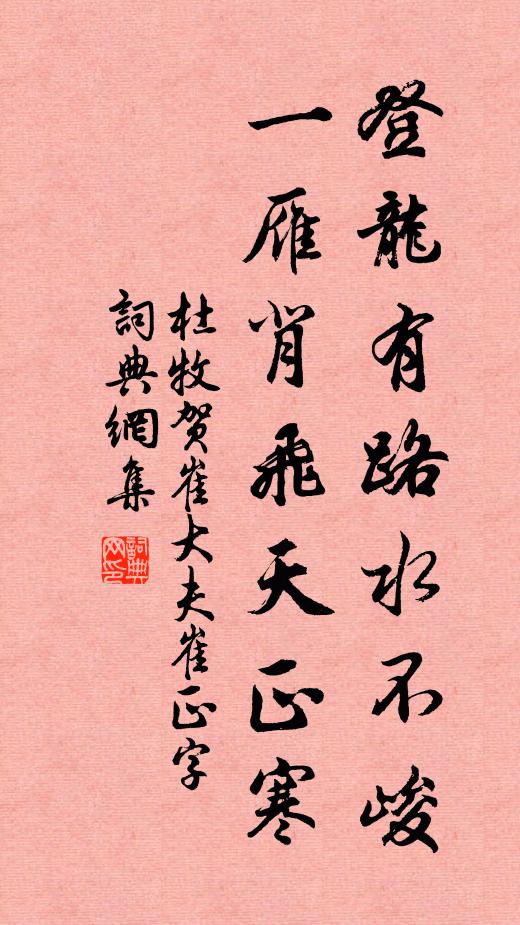 登龍有路水不峻
一雁背飛天正寒
杜牧賀崔大夫崔正字
詞典網集
詞典网印